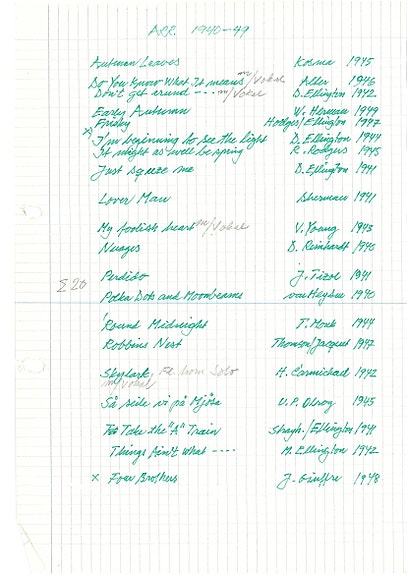 ARR. 1940-49
Autumn Leaves Kosma 1945
Do You Know What It means m/Vokal Alter 1946
Don't get around ---- m/Vokal D. Ellington 1942
Early Autumn W. Herman 1949
Frisky Hodges/Ellington 1947
x I'm beginning to see the light D. Ellington 1944
It might as well be spring R. Rodgers 1945
Just squeeze me D. Ellington 1941
Lover Man Sherman 1941
My foolish heart m/Vokal V. Young 1943
Nuages D. Reinhardt 1940
Σ 20
Perdido J. Tizol 1941
Polka Dots and Moonbeams van Heusen 1940
'Round Midnight T. Monk 1944
Robbins Nest Thomson/Jacquet 1947
Skylark, Fl. horn Solo H. Carmichael 1942
m/Vokal
Så seile vi på Mjøsa U.P. Olrog 1945
Take the "A" Train Strayh./Ellington 1941
Things Ain't What ---- M. Ellington 1942
x Four Brothers J. Giuffre 1948